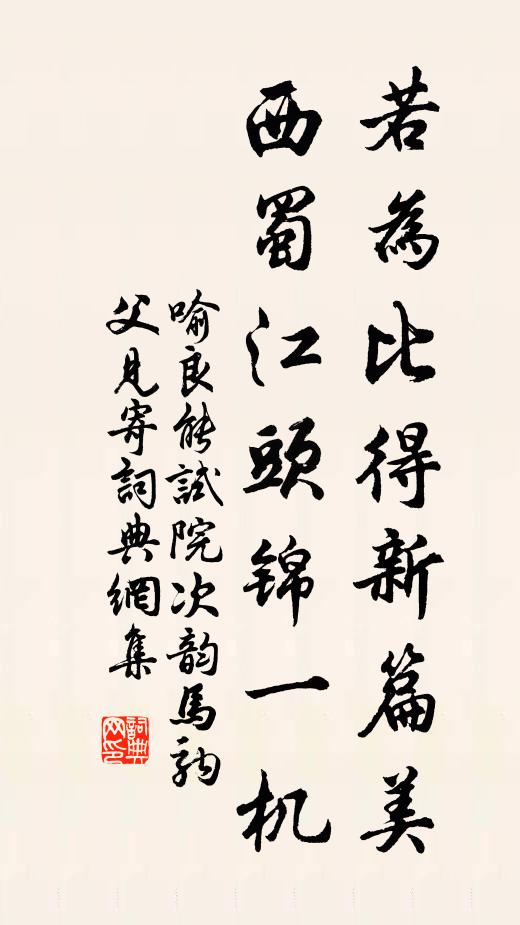 若為比得新篇美
西蜀江頭錦一机
喻良能試院次韵馬駒
父見寄詞典網集
詞典網印